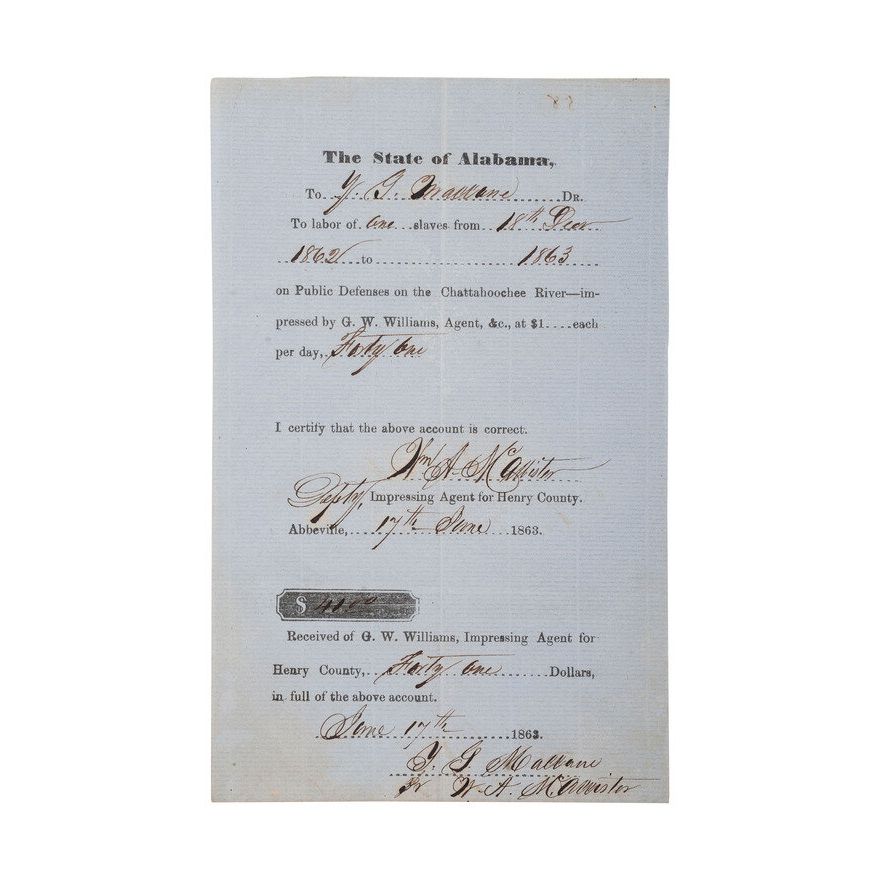 The State of Alabama,
To Y. G. Malvane DR.
To labor of one slaves from 18th Decr
1862 to 1863
on Public Defenses on the Chattahoochee River—im-
pressed by G. W. Williams, Agent, &c., at $1 each
per day, Forty one
I certify that the above account is correct.
Wm A. McAllister
Depty, Impressing Agent for Henry County.
Abbeville, 17th June 1863.
$ 41.00
Received of G. W. Williams, Impressing Agent for
Henry County, Forty one Dollars,
in full of the above account.
June 17th 1863.
Y. G. Malvane
Pr W. A. McAllister